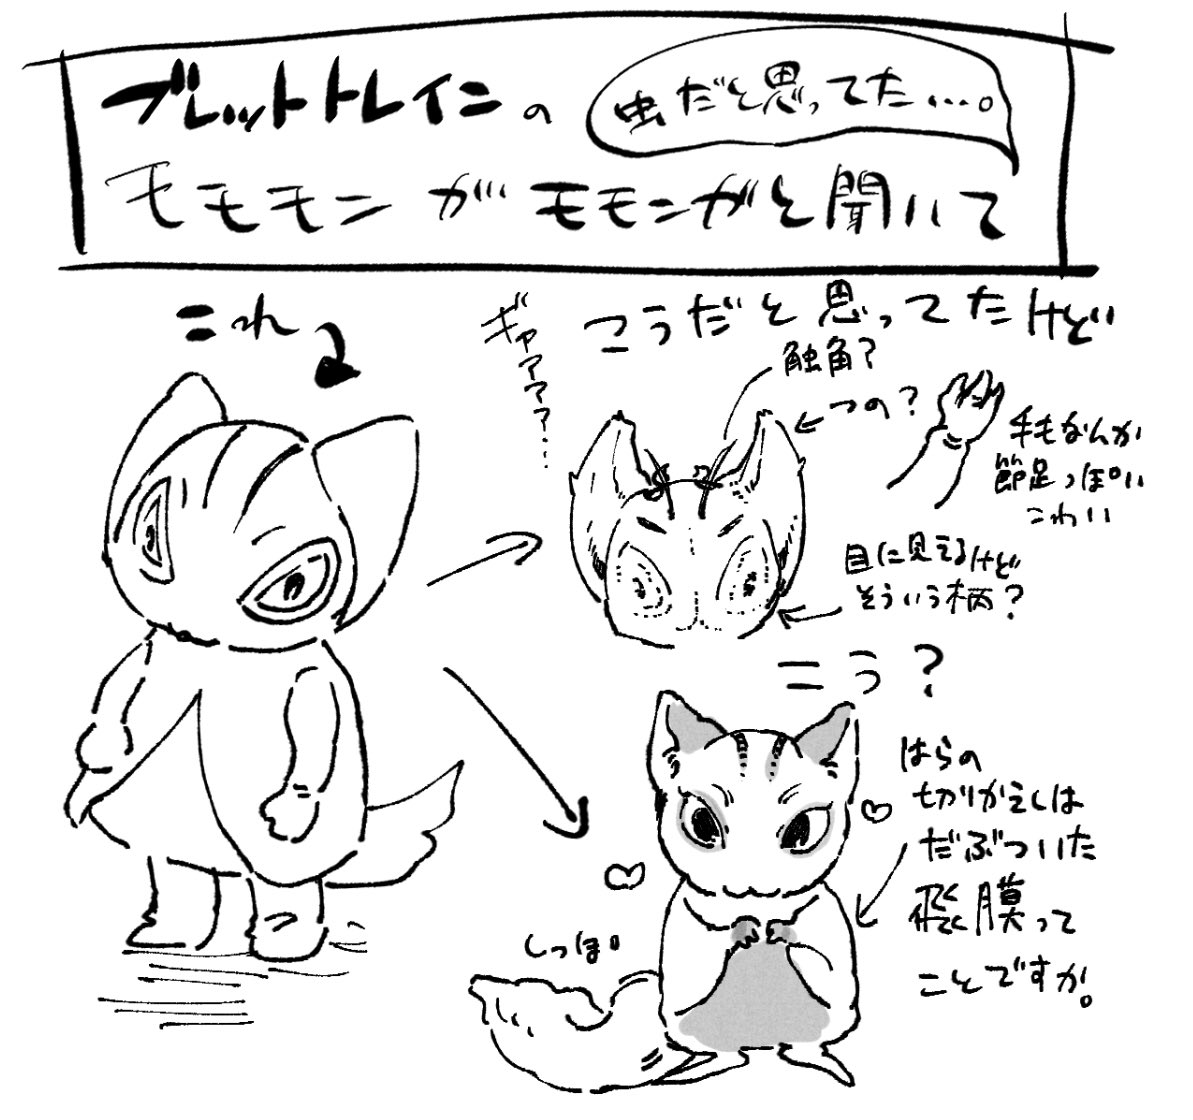 ブレットトレインの
虫だと思ってた…。
モモモンがモモンガと聞いて
これ
ギャアアアア…
こうだと思ってたけど
触角?
つの?
手もなんか
節足っぽい
こわい
目に見えるけど
そういう柄?
こう?
はらの
切りかえしは
だぶついた
飛膜って
ことですか。
しっぽ。